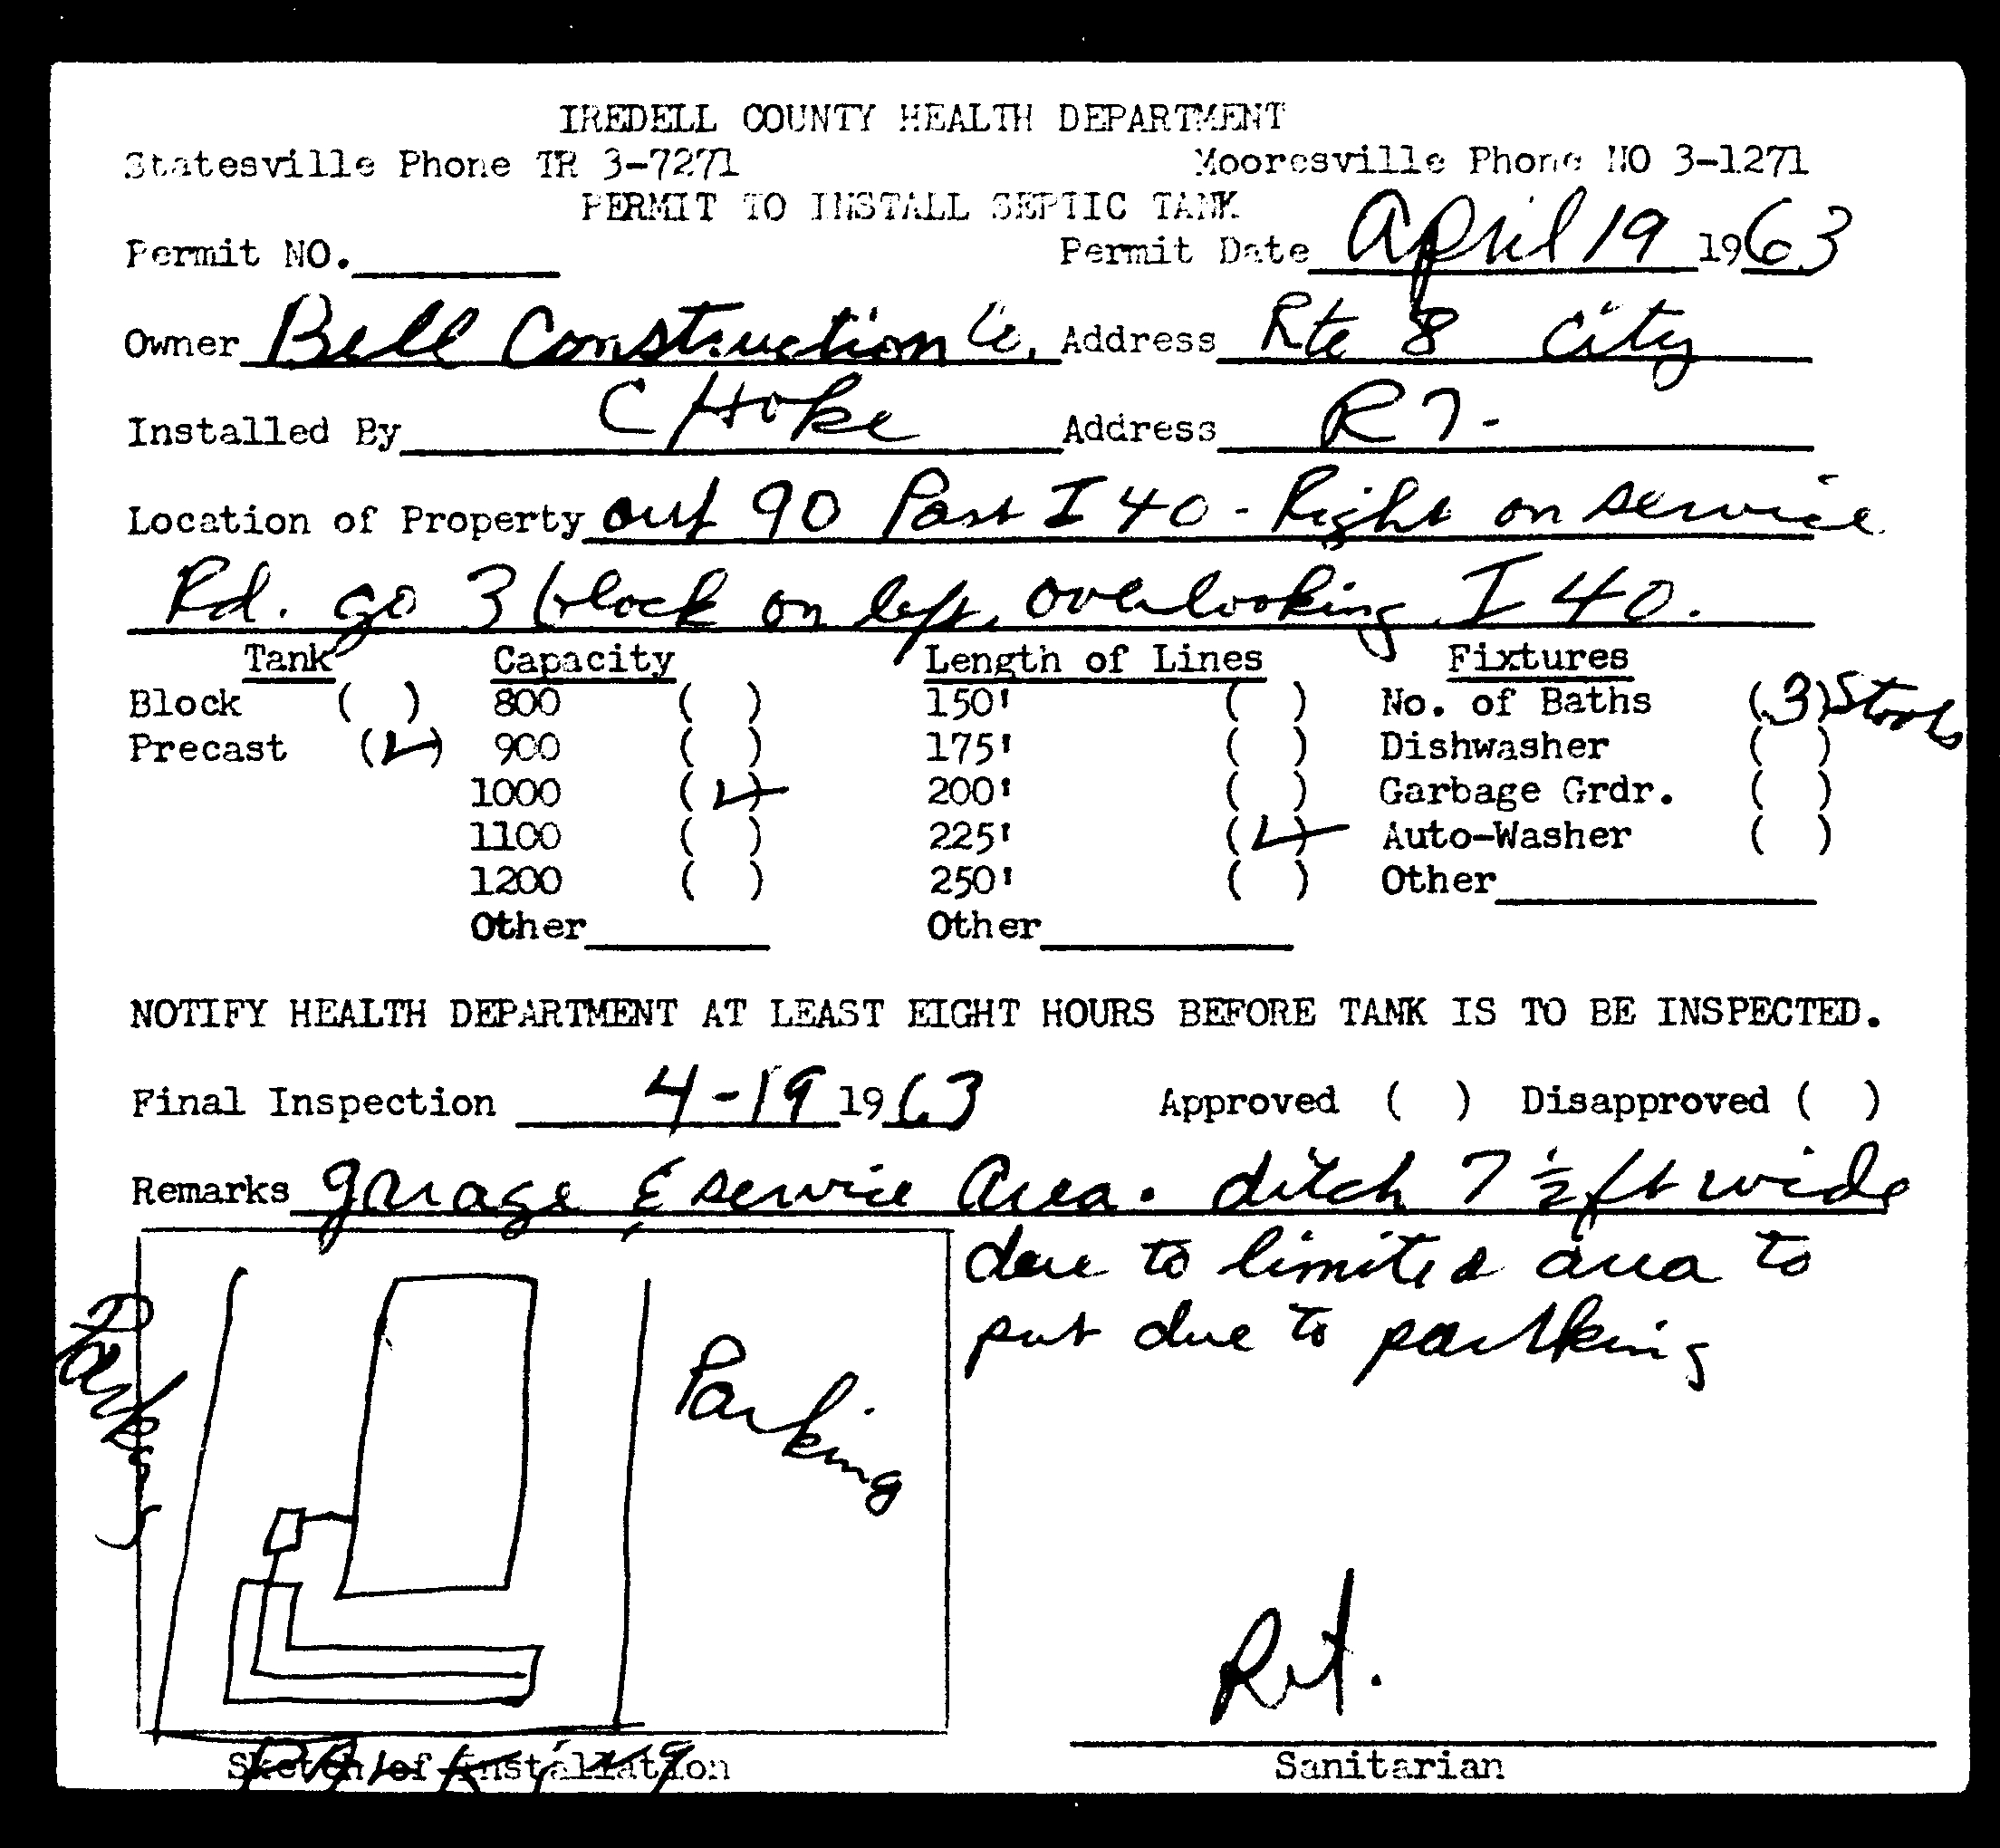 IREDELL COUNTY HEALTH DEPARTMENT
Statesville Phone TR 3-7271 Mooresville Phone NO 3-1271
PERMIT TO INSTALL SEPTIC TANK
Permit NO. Permit Date April 19 1963
Owner Bell Construction Co, Address Rte 8 City
Installed By C Hoke Address R 7-
Location of Property out 90 Past I 40 - Right on service
Rd. go 3 block on left, overlooking I 40.
Tank Capacity Length of Lines Fixtures
Block ( ) 800 ( ) 150' ( ) No. of Baths (3) Stools
Precast (✓) 900 ( ) 175' ( ) Dishwasher ( )
1000 (✓) 200' ( ) Garbage Grdr. ( )
1100 ( ) 225' (✓) Auto-Washer ( )
1200 ( ) 250' ( ) Other
Other Other
NOTIFY HEALTH DEPARTMENT AT LEAST EIGHT HOURS BEFORE TANK IS TO BE INSPECTED.
Final Inspection 4-19 1963 Approved ( ) Disapproved ( )
Remarks garage & service Area. ditch 7 ½ ft wide
due to limited area to
put due to partking
Parking
Parking
Parking
Sketch of Installation
Sanitarian